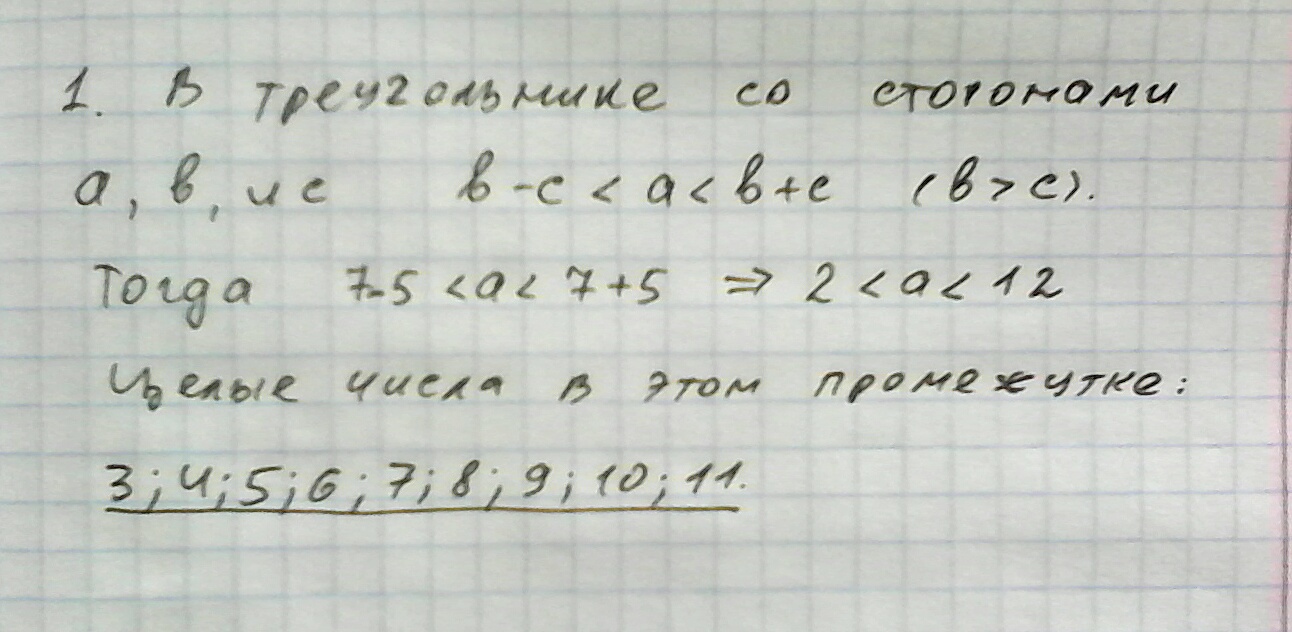 1. В треугольнике со сторонами
а, в, и с в-с < а < в+с (в > с).
Тогда 7-5 < а < 7+5 ⇒ 2 < а < 12
Целые числа в этом промежутке:
3; 4; 5; 6; 7; 8; 9; 10; 11.